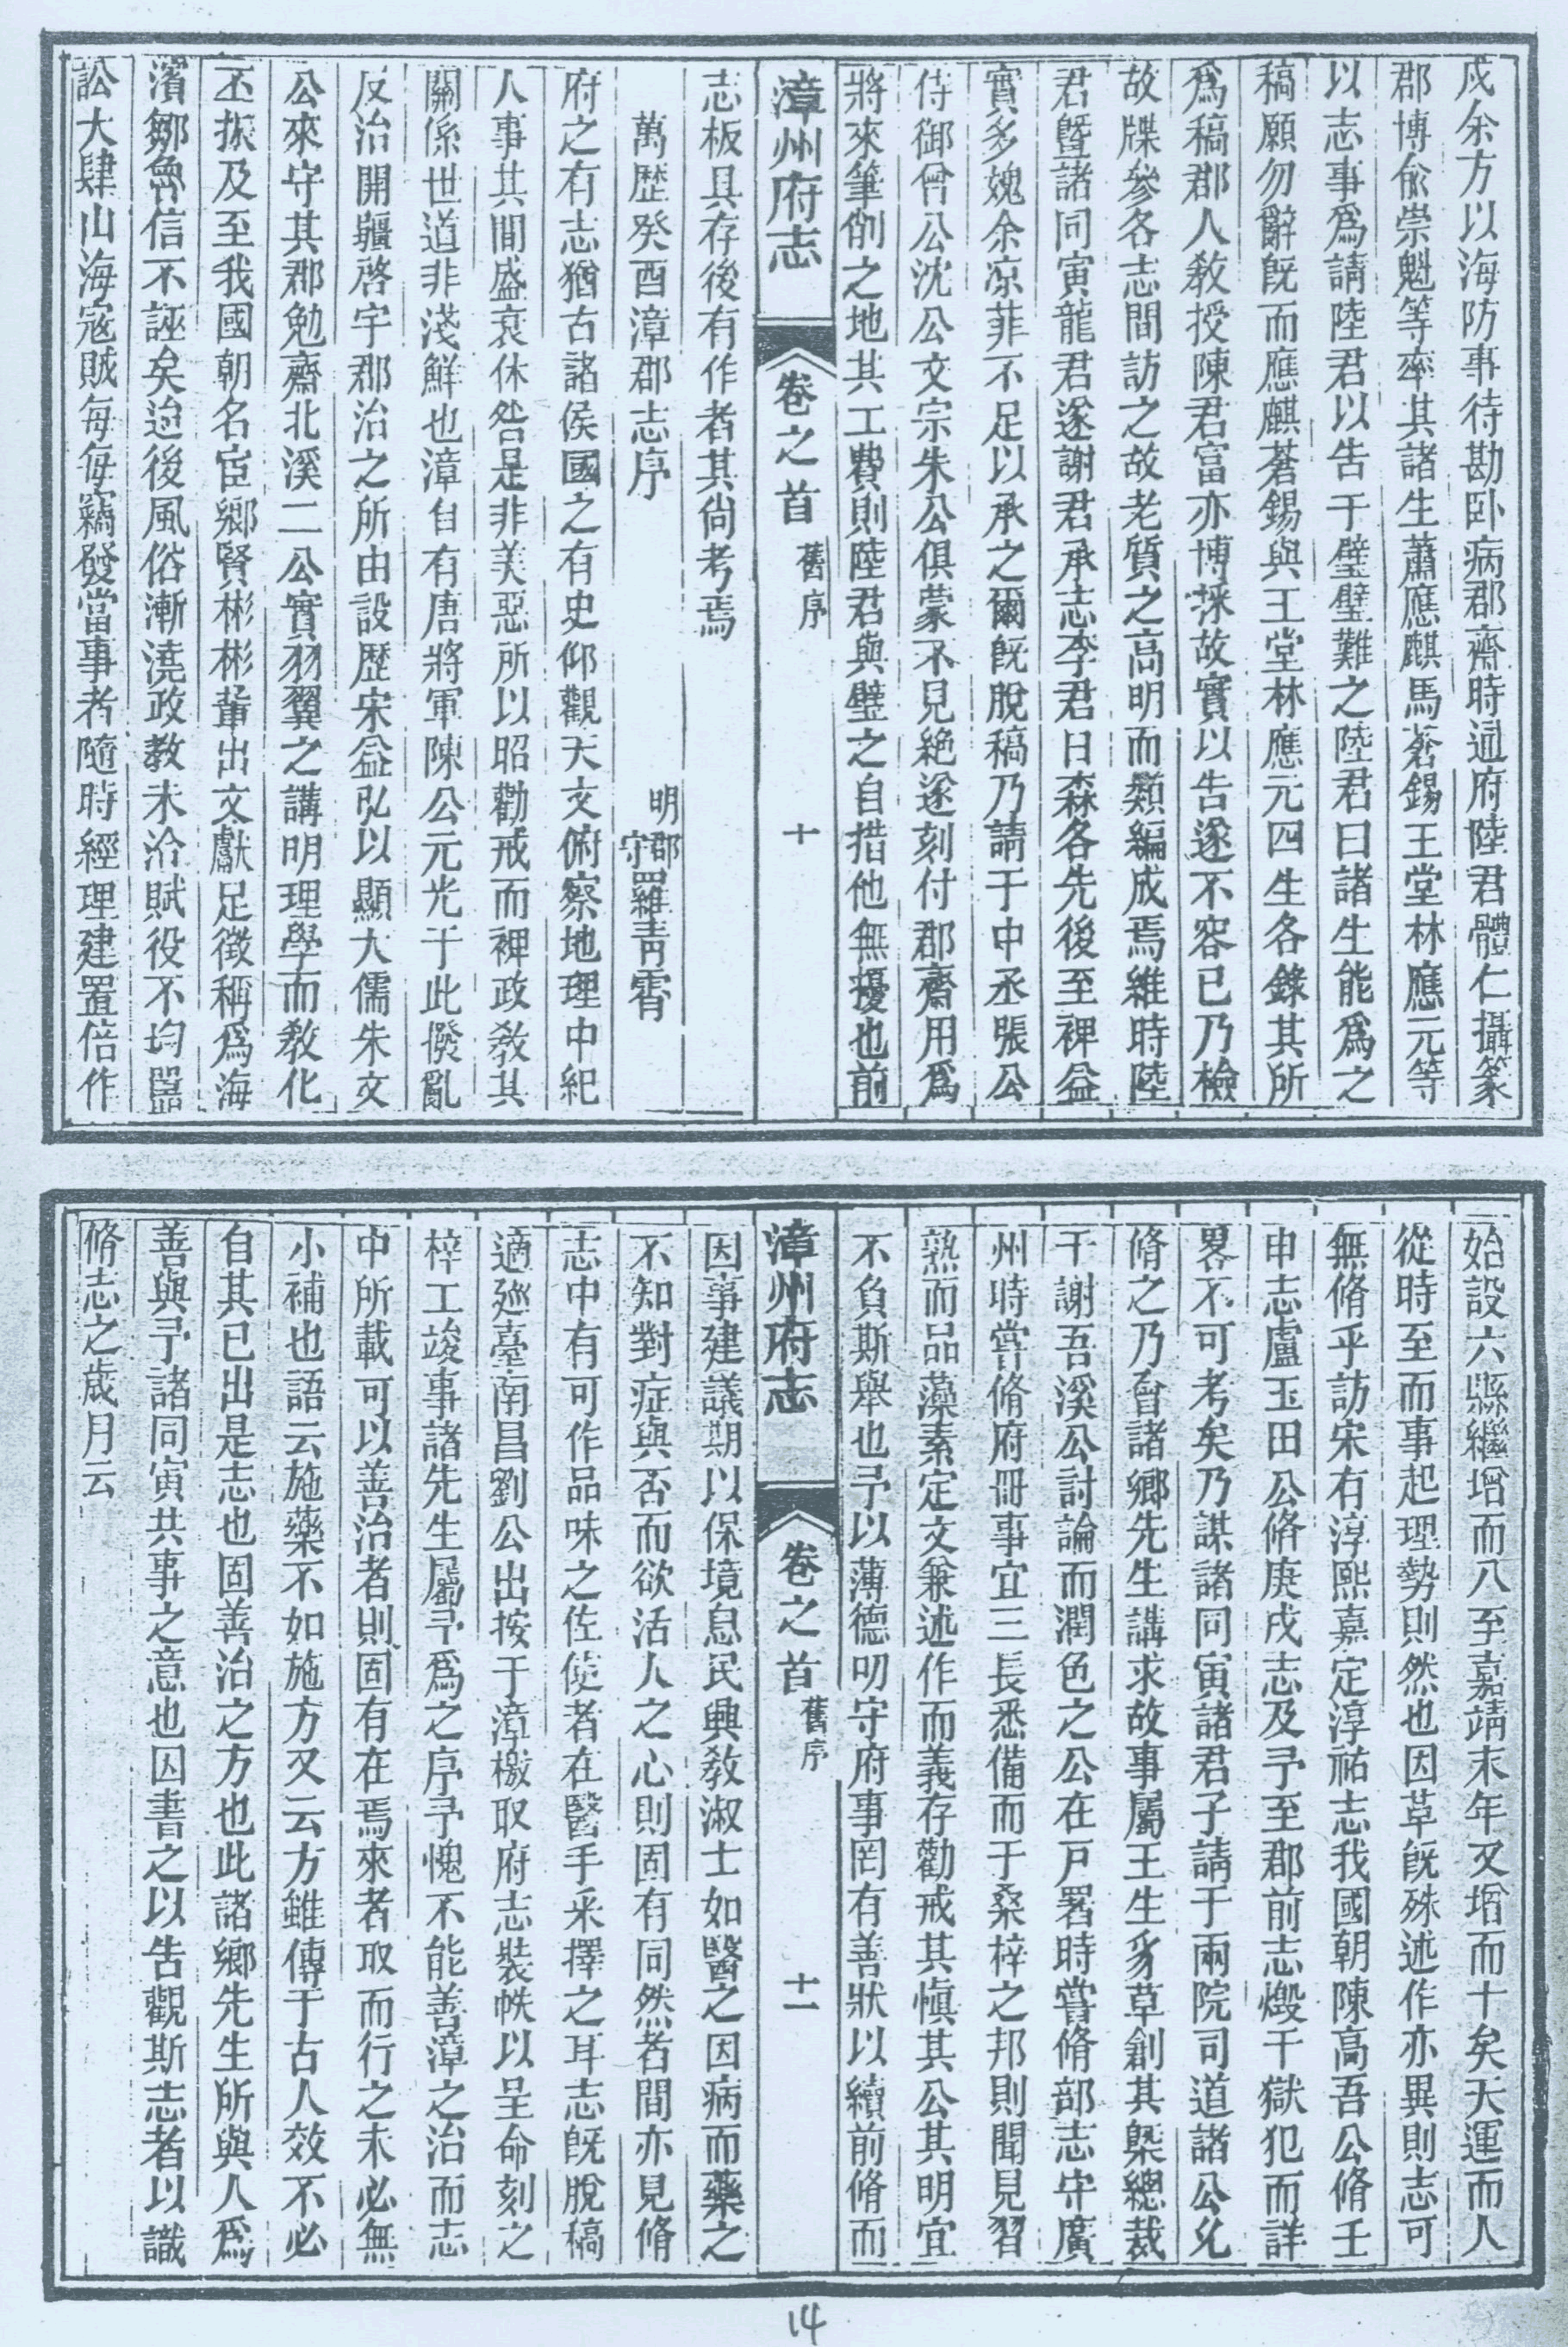 戍余方以海防事待勘卧病郡齋時通府陸君體仁攝篆
郡博俞崇魁等率其諸生蕭應麒馬蒼錫王堂林應元等
以志事爲請陸君以告于璧璧難之陸君曰諸生能爲之
稿願勿辭旣而應麒蒼錫與王堂林應元四生各錄其所
爲稿郡人教授陳君富亦博採故實以告遂不容已乃檢
故牒參各志間訪之故老質之高明而類編成焉維時陸
君曁諸同寅龍君遂謝君承志李君日森各先後至裨益
實多媿余凉菲不足以承之爾旣脫稿乃請于中丞張公
侍御曾公沈公文宗朱公俱蒙不見絶遂刻付郡齋用爲
將來筆削之地其工費則陸君與璧之自措他無擾也前
漳州府志 卷之首 舊序 十
志板具存後有作者其尙考焉
萬歷癸酉漳郡志序 明郡守羅青霄
府之有志猶古諸侯國之有史仰觀天文俯察地理中紀
人事其間盛衰休咎是非美惡所以昭勸戒而裨政教其
關係世道非淺鮮也漳自有唐將軍陳公元光于此撥亂
反治開疆啓宇郡治之所由設歷宋益弘以顯大儒朱文
公來守其郡勉齋北溪二公實羽翼之講明理學而敎化
丕振及至我國朝名宦鄉賢彬彬輩出文獻足徵稱爲海
濱鄒魯信不誣矣迨後風俗漸澆政教未洽賦役不均嚚
訟大肆山海寇賊每每竊發當事者隨時經理建置倍作
始設六縣繼增而八至嘉靖末年又增而十矣天運而人
從時至而事起理勢則然也因革旣殊述作亦異則志可
無脩乎訪宋有淳熙嘉定淳祐志我國朝陳高吾公脩壬
申志盧玉田公脩庚戌志及予至郡前志燬于獄犯而詳
畧不可考矣乃謀諸同寅諸君子請于兩院司道諸公允
脩之乃會諸鄉先生講求故事屬王生豸草創其槩總裁
于謝吾溪公討論而潤色之公在戸署時嘗脩部志守廣
州時嘗脩府冊事宜三長悉備而于桑梓之邦則聞見習
熟而品藻素定文兼述作而義存勸戒其愼其公其明宜
不負斯舉也予以薄德叨守府事罔有善狀以續前脩而
漳州府志 卷之首 舊序 十一
因事建議期以保境息民興敎淑士如醫之因病而藥之
不知對症與否而欲活人之心則固有同然者間亦見脩
志中有可作品味之佐使者在醫手采擇之耳志旣脫稿
適廵臺南昌劉公出按于漳檄取府志裝帙以呈命刻之
梓工竣事諸先生屬予爲之序予愧不能善漳之治而志
中所載可以善治者則固有在焉來者取而行之未必無
小補也語云施藥不如施方又云方雖傳于古人效不必
自其已出是志也固善治之方也此諸鄉先生所與人爲
善與予諸同寅共事之意也因書之以告觀斯志者以識
脩志之歲月云
14